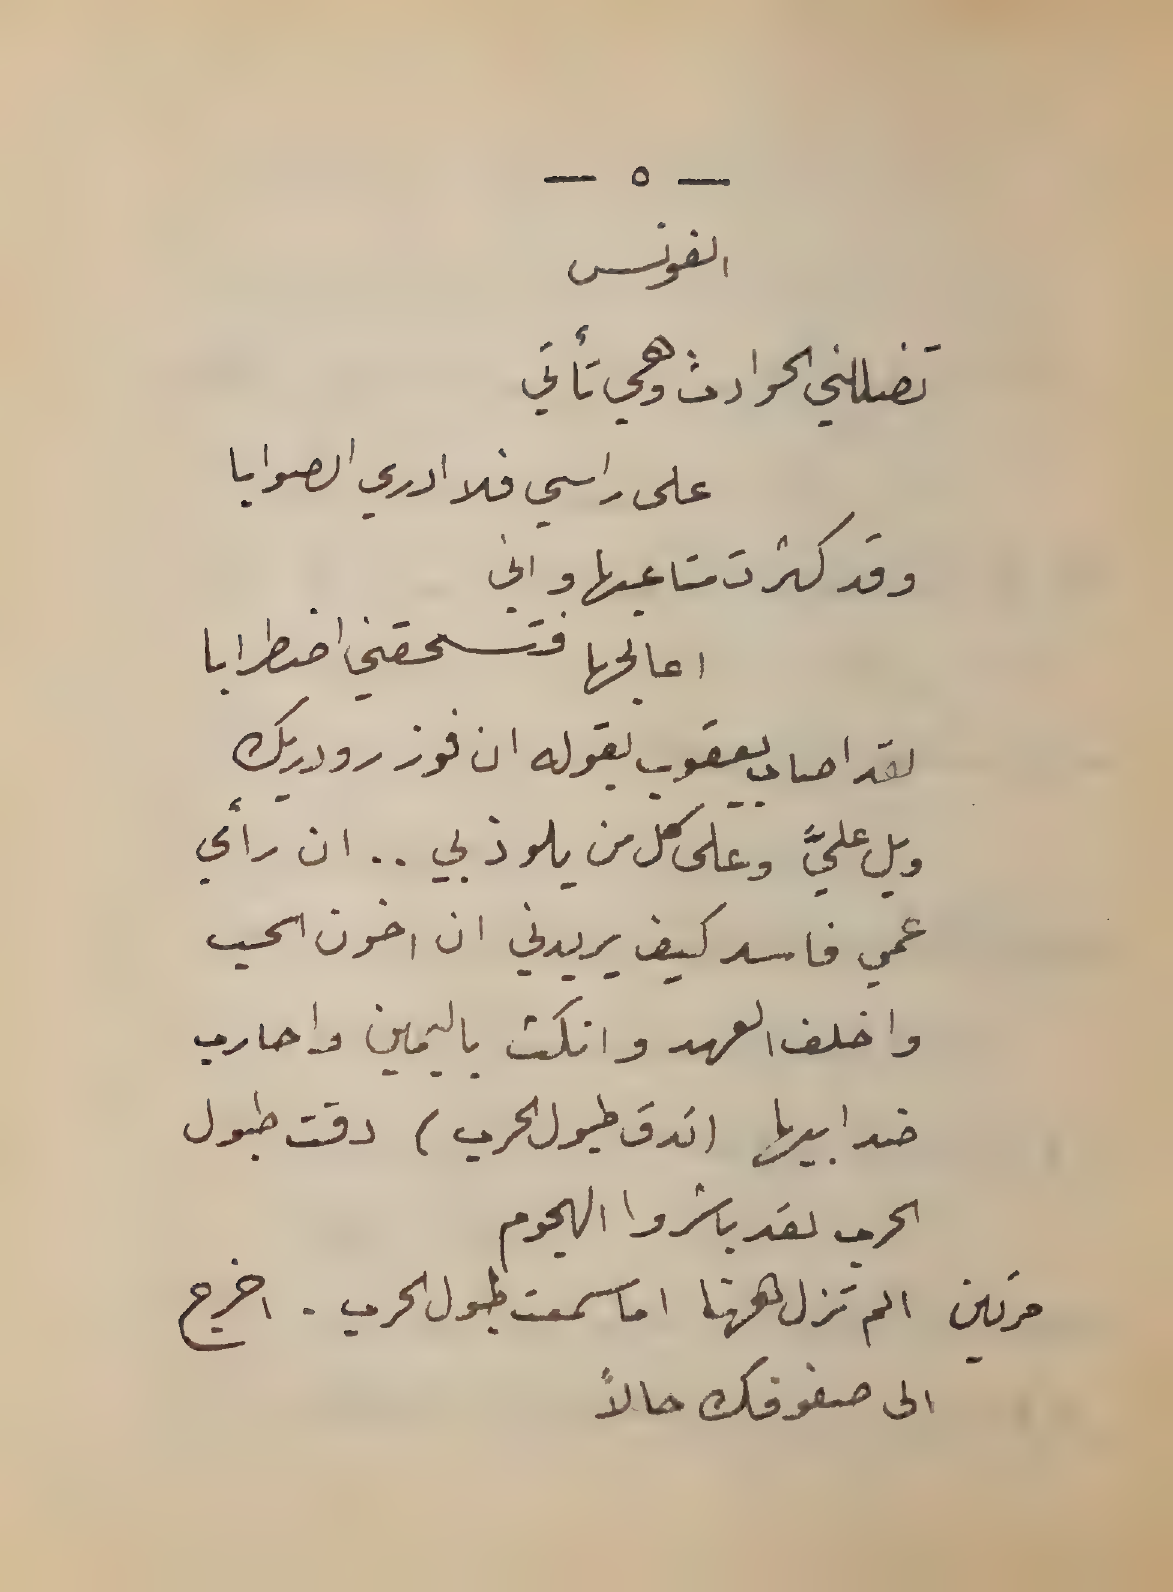 — ٥ —
الفونس
تضللني الحوادث وهي تأتي
على راسي فلا ادري الصوابا
وقد كثرت متاعبها واني
اعالجها فتسحقني اضطرابا
لقد اصاب يعقوب بقوله ان فوز رودريك
ويل عليَّ وعلى كل من يلوذ بي .. ان رأي
عمي فاسد كيف يريدني ان اخون الحب
واخلف العهد وانكث باليمين واحارب
ضد ابيها (تدق طبول الحرب) دقت طبول
الحرب لقد باشروا الهجوم
مرتين الم تزل ههنا اما سمعت طبول الحرب . اخرج
الى صفوفك حالاً